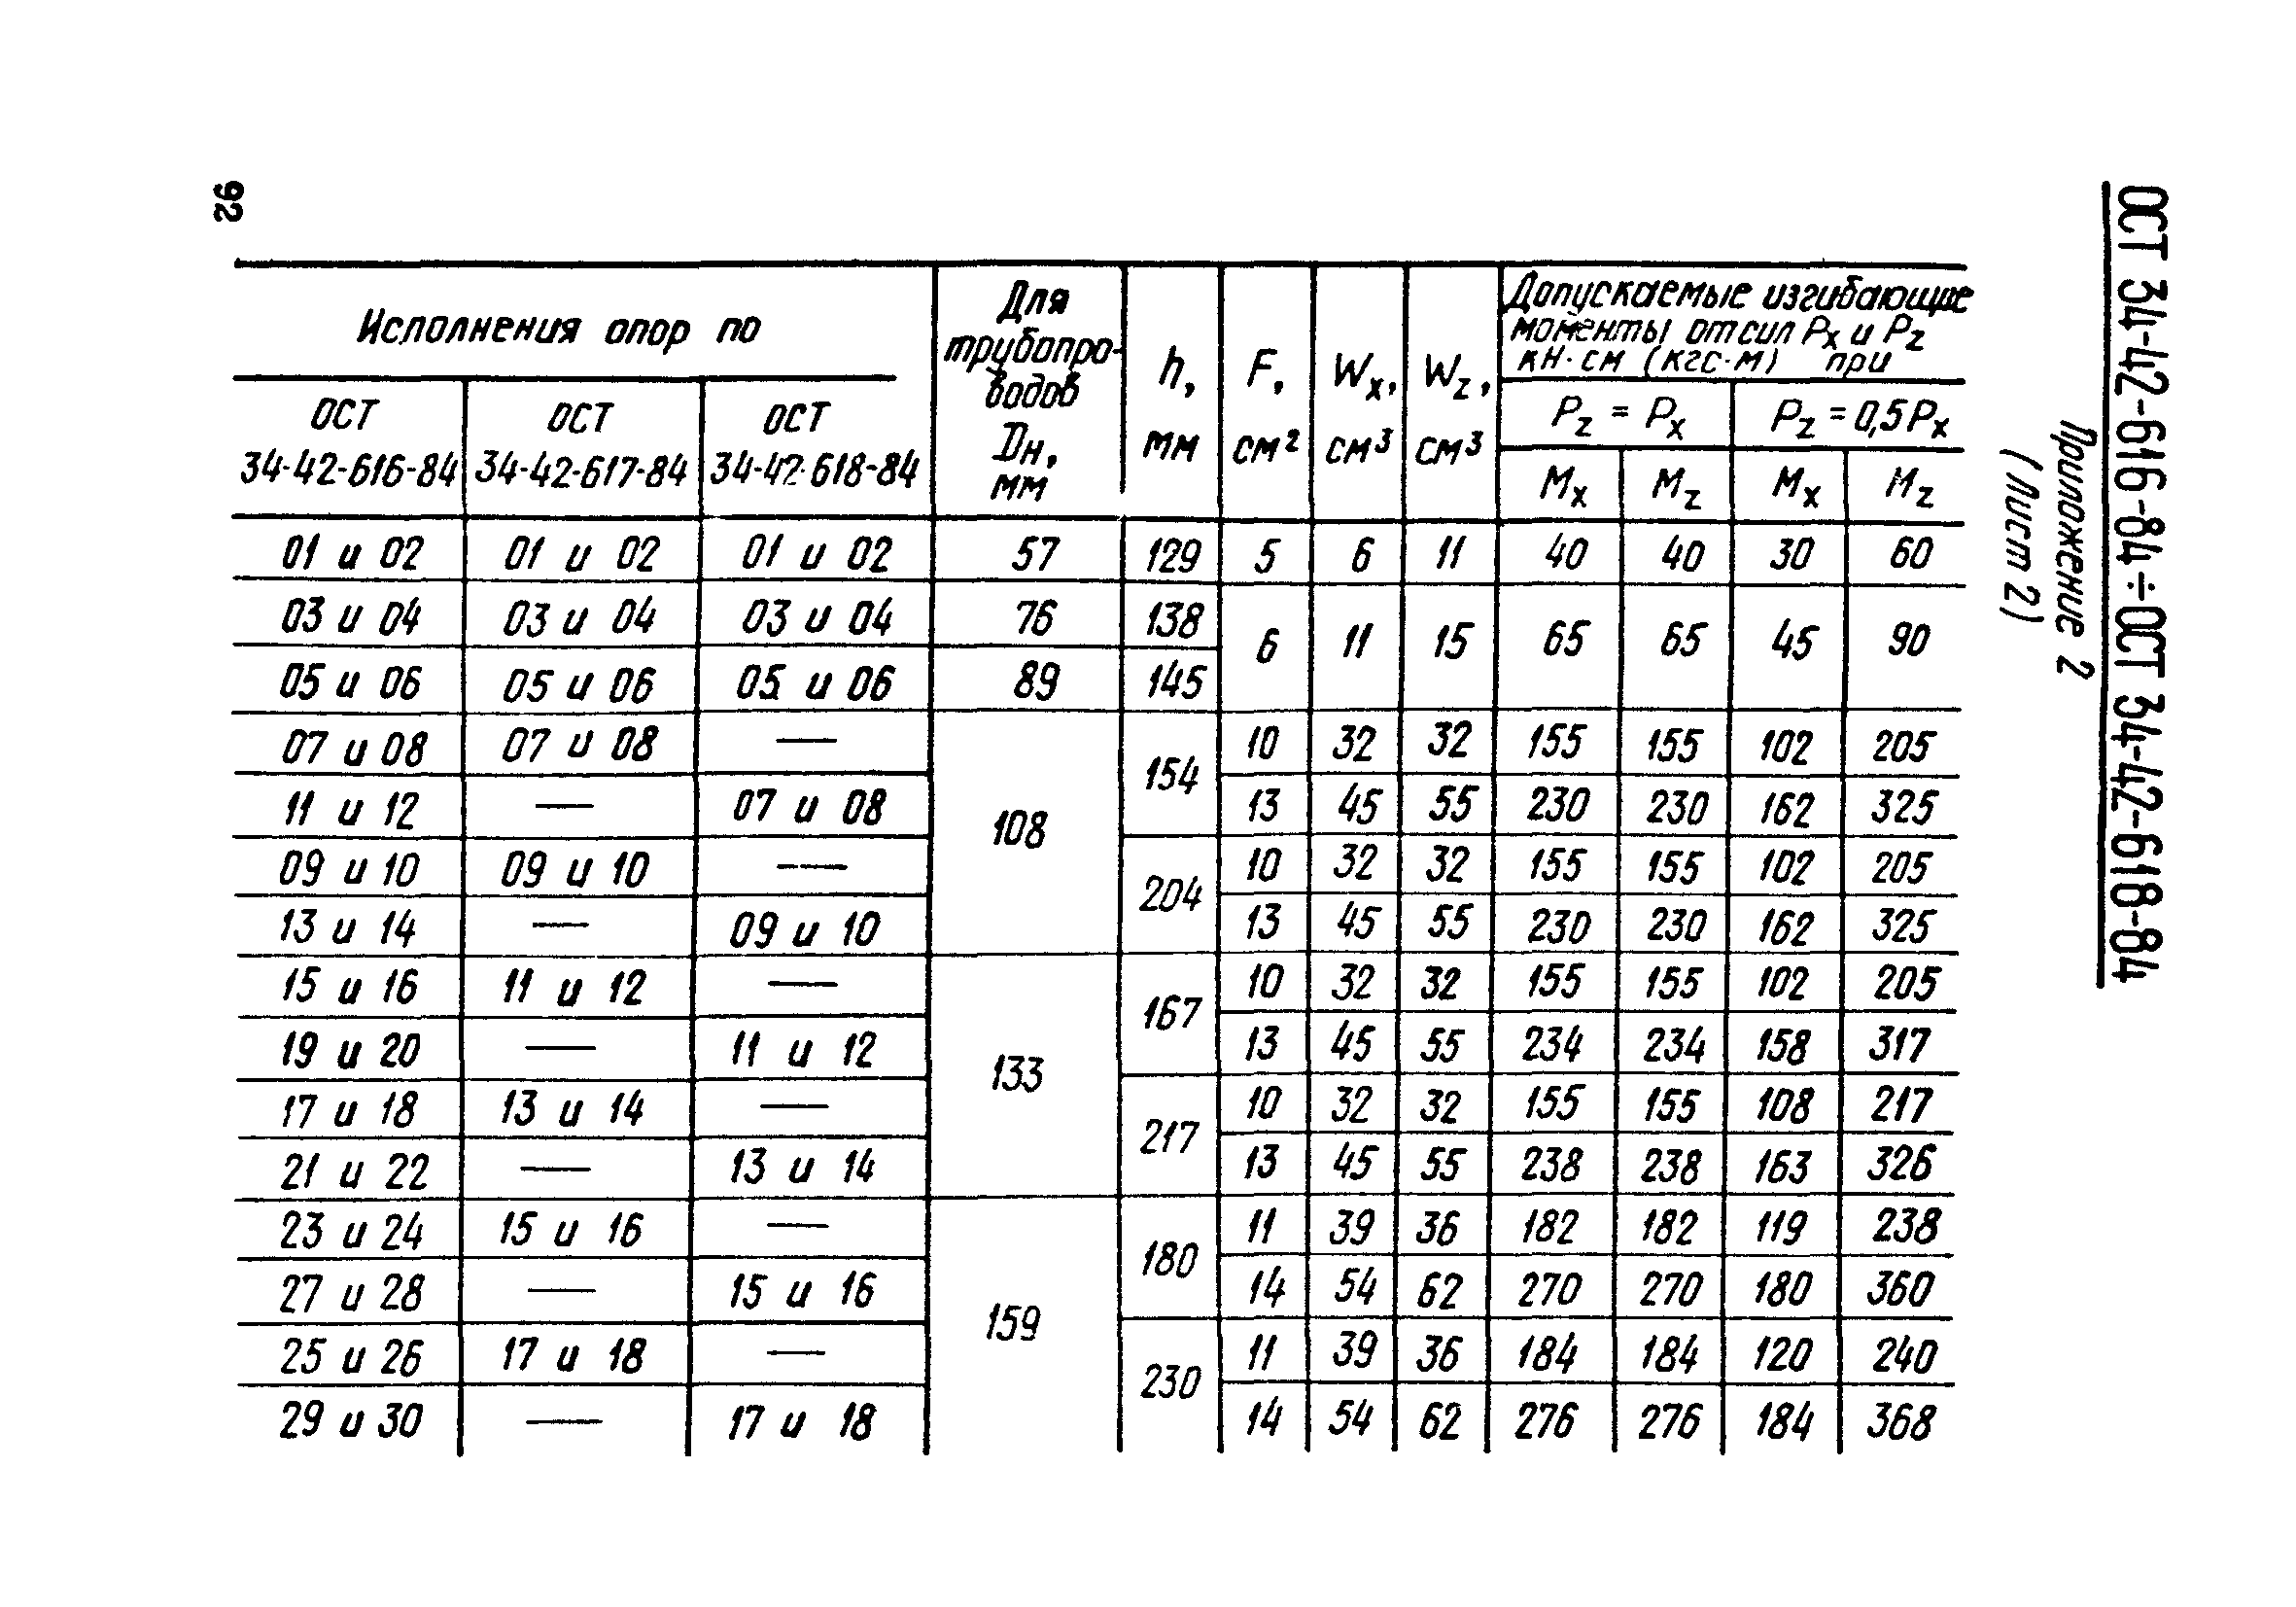 92
ОСТ 34-42-616-84÷ОСТ 34-42-618-84
Приложение 2
(Лист 2)
Исполнения опор по
Для трубопро-водов Dн, мм
h, мм
F, см²
Wx, см³
Wz, см³
Допускаемые изгибающие
моменты от сил Px и Pz
кН·см (кгс·м) при
ОСТ 34-42-616-84 ОСТ 34-42-617-84 ОСТ 34-42-618-84
Pz = Px Pz = 0,5Px
Mx Mz Mx Mz
01 и 02 01 и 02 01 и 02 57 129 5 6 11 40 40 30 60
03 и 04 03 и 04 03 и 04 76 138 6 11 15 65 65 45 90
05 и 06 05 и 06 05 и 06 89 145
07 и 08 07 и 08 — 108 154 10 32 32 155 155 102 205
11 и 12 — 07 и 08 13 45 55 230 230 162 325
09 и 10 09 и 10 — 204 10 32 32 155 155 102 205
13 и 14 — 09 и 10 13 45 55 230 230 162 325
15 и 16 11 и 12 — 133 167 10 32 32 155 155 102 205
19 и 20 — 11 и 12 13 45 55 234 234 158 317
17 и 18 13 и 14 — 217 10 32 32 155 155 108 217
21 и 22 — 13 и 14 13 45 55 238 238 163 326
23 и 24 15 и 16 — 159 180 11 39 36 182 182 119 238
27 и 28 — 15 и 16 14 54 62 270 270 180 360
25 и 26 17 и 18 — 230 11 39 36 184 184 120 240
29 и 30 — 17 и 18 14 54 62 276 276 184 368